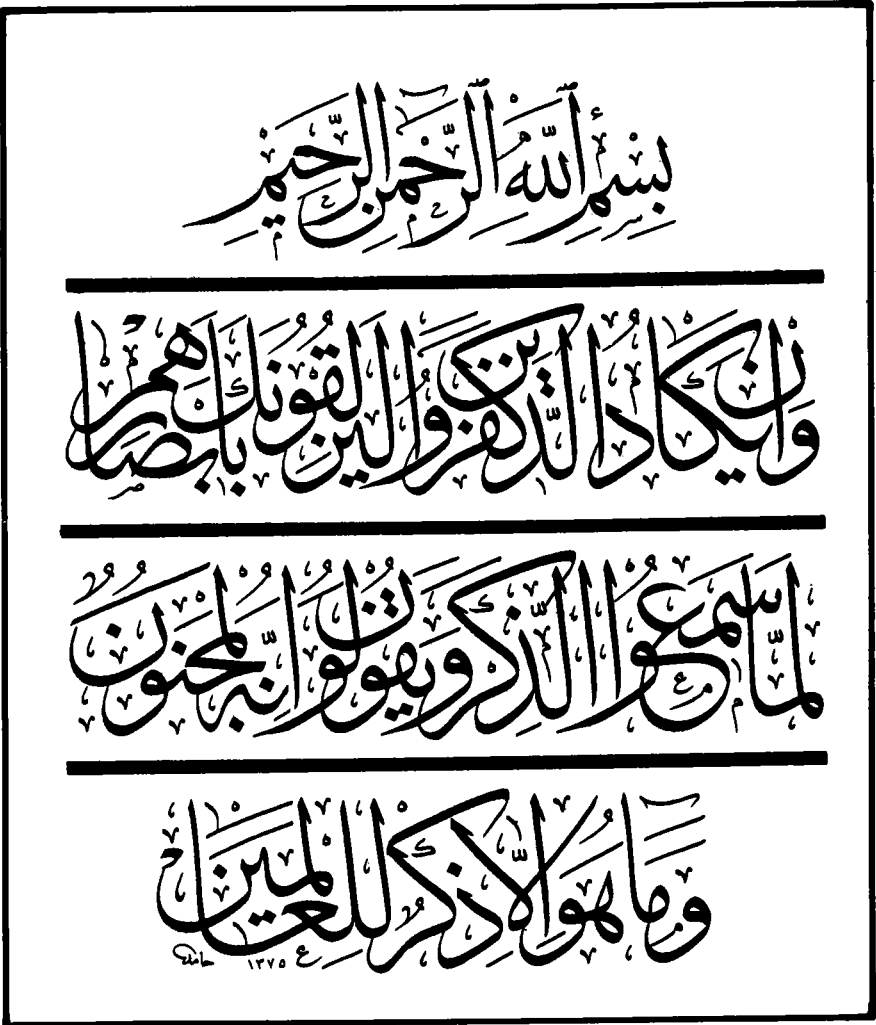 بِسْمِ ٱللَّهِ ٱلرَّحْمٰنِ ٱلرَّحِيمِ
وَاِنْ يَكَادُ الَّذِينَ كَفَرُوا لَيُزْلِقُونَكَ بِاَبْصَارِهِمْ
لَمَّا سَمِعُوا الذِّكْرَ وَيَقُولُونَ اِنَّهُ لَمَجْنُونٌ
وَمَا هُوَ اِلَّا ذِكْرٌ لِلْعَالَمِينَ
حامد ١٣٧٥